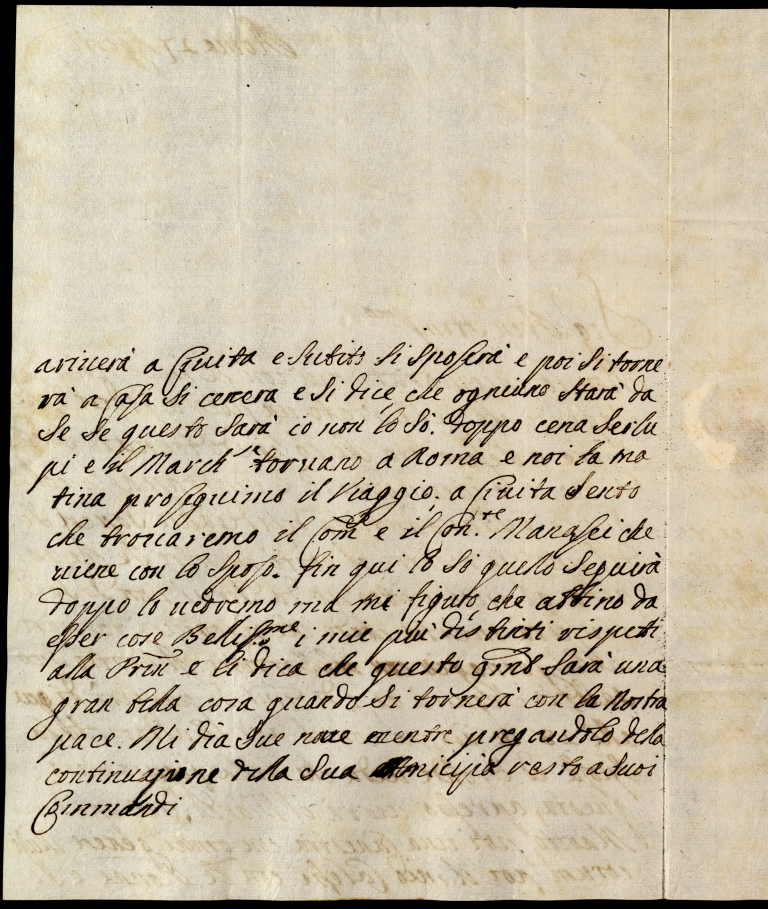 arriverà a Civita e subito si sposerà e poi si torne
rà a casa si cenerà e si dice che ogniuno starà da
se se questo sarà io non lo sò. doppo cena Serlu
pi e il March.e tornano a Roma e noi la ma
tina proseguimo il Viaggio. a Civita sento
che trovaremo il Com e il Con.te Manassei che
viene con lo sposo. fin qui lo sò quelo seguirà
doppo lo vedremo ma mi figuro che abbino da
esser cose Bellissme i miei più distinti rispetti
alla Prin e li dica che questo gmo sarà una
gran bella cosa quando si tornerà con la nostra
pace. Mi dia sue nove mentre pregandolo della
continuazione della sua Amicizia resto a suoi
Commandi